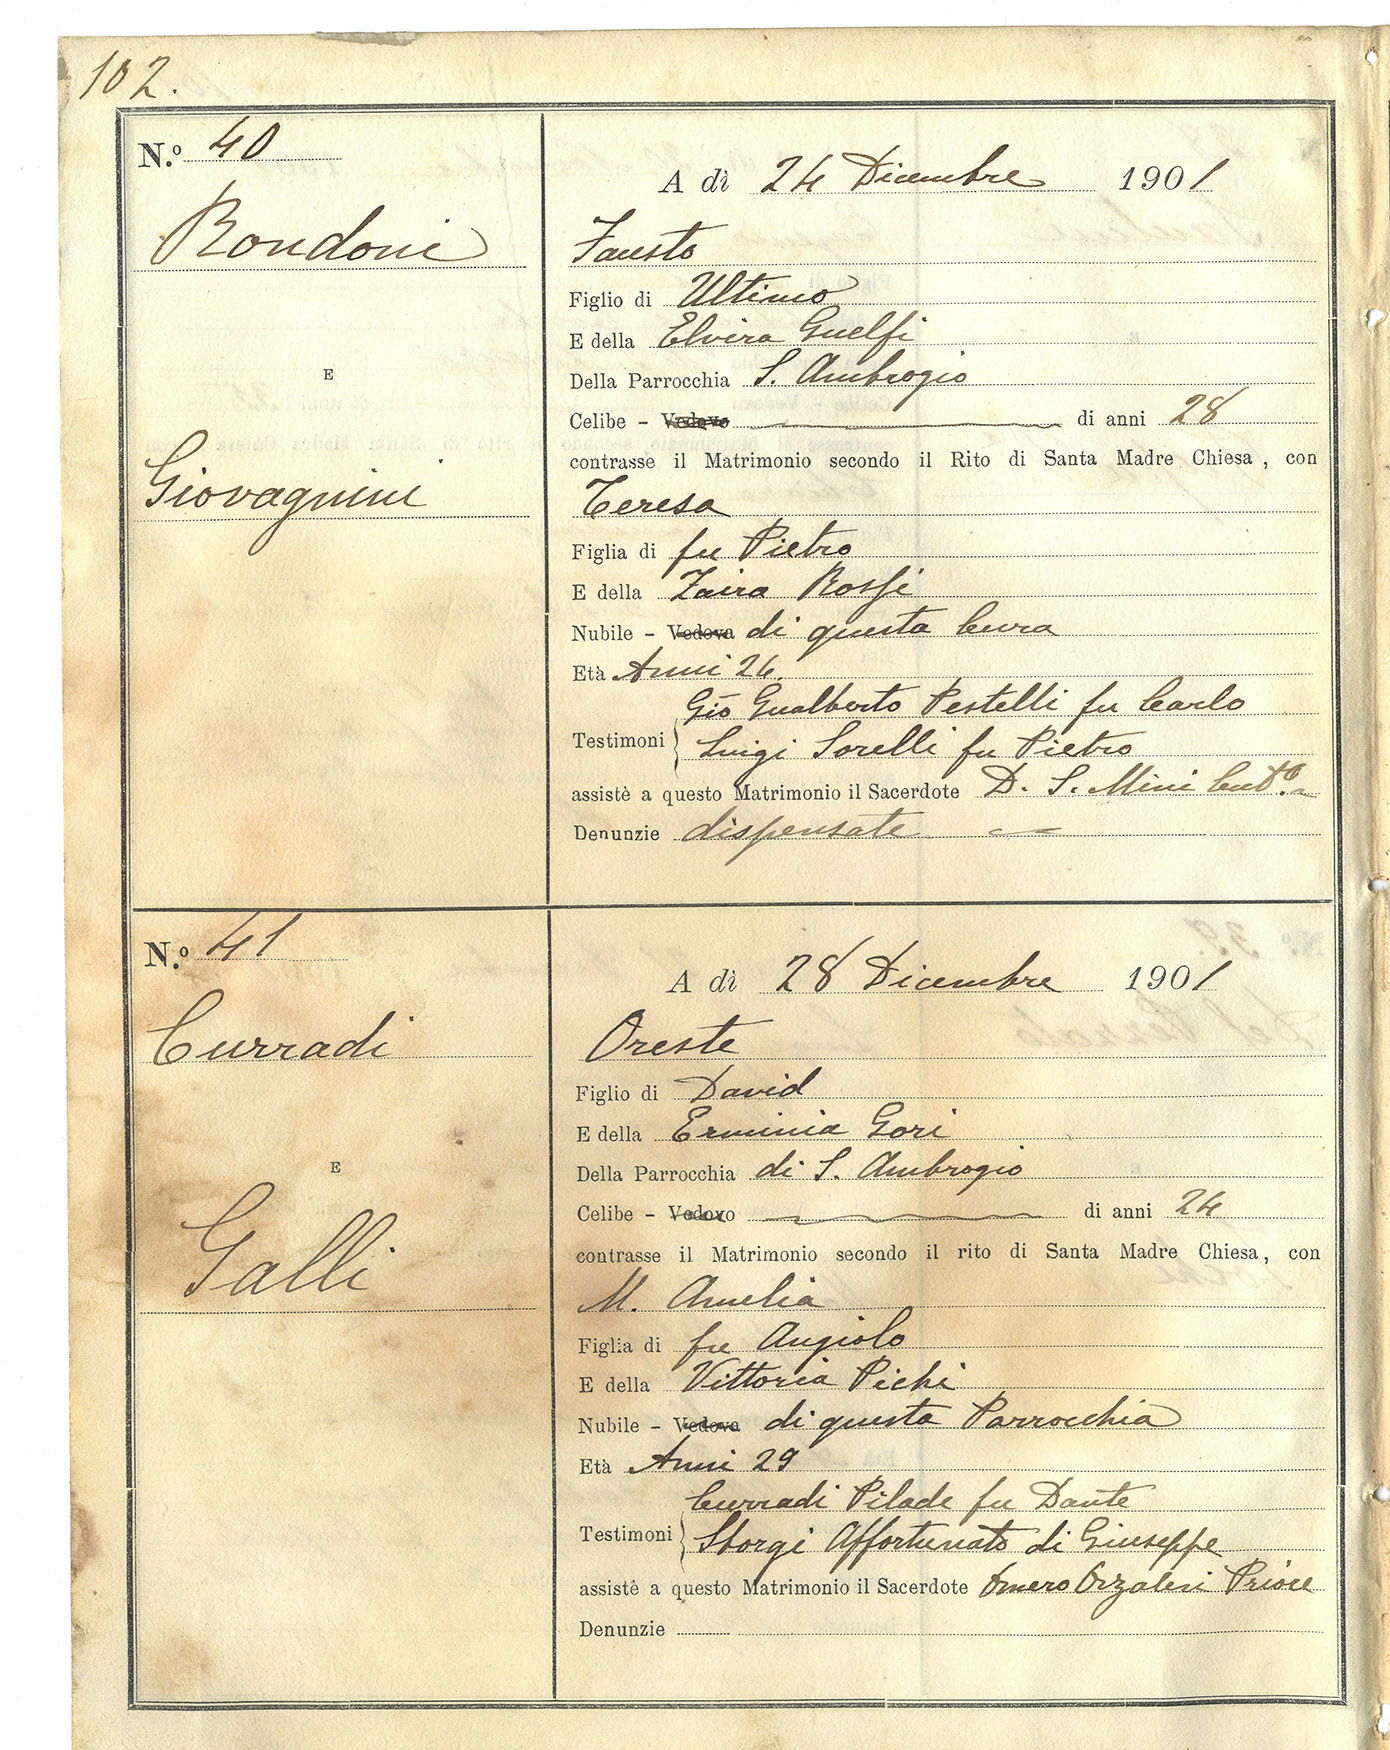 102.
N.º 40
A dì 24 Dicembre 1901
Rondoni
Fausto
Figlio di Ultimo
E della Elvira Guelfi
E
Della Parrocchia S. Ambrogio
Celibe - Vedovo di anni 28
contrasse il Matrimonio secondo il Rito di Santa Madre Chiesa, con
Giovagnini
Teresa
Figlia di fu Pietro
E della Zaira Rossi
Nubile - Vedova di questa Cura
Età Anni 26.
Gio Gualberto Pestelli fu Carlo
Testimoni
Luigi Sorelli fu Pietro
assistè a questo Matrimonio il Sacerdote D. S. Mini
Denunzie dispensate
N.º 41
A dì 28 Dicembre 1901
Curradi
Oreste
Figlio di David
E della Erminia Gori
E
Della Parrocchia di S. Ambrogio
Celibe - Vedovo di anni 24
contrasse il Matrimonio secondo il rito di Santa Madre Chiesa, con
Galli
M. Amelia
Figlia di fu Angiolo
E della Vittoria Pichi
Nubile - Vedova di questa Parrocchia
Età Anni 29
Curradi Pilade fu Dante
Testimoni
Storgi Affortunato di Giuseppe
assistè a questo Matrimonio il Sacerdote Omero Orzalesi Priore
Denunzie